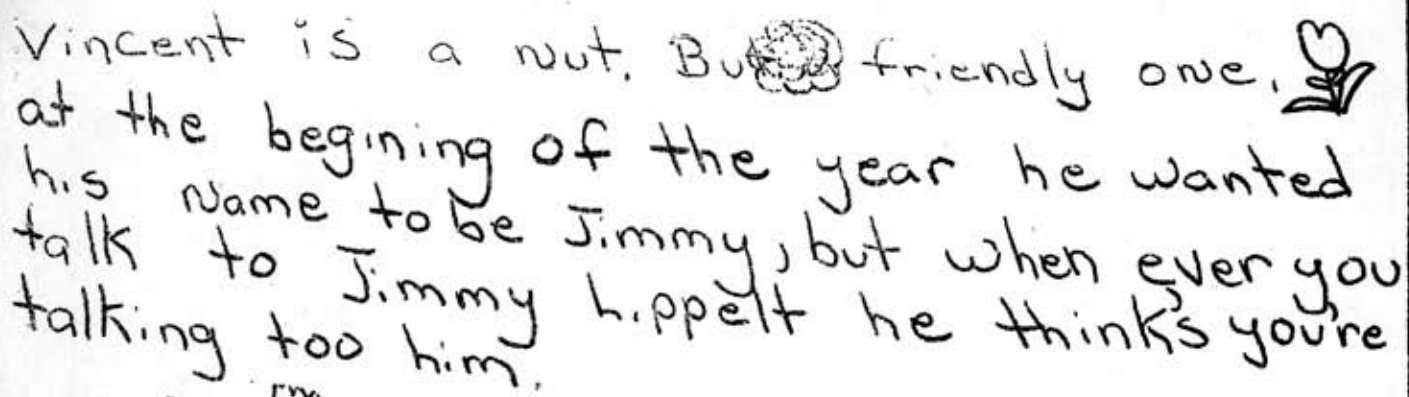 Vincent is a nut. But friendly one.
at the begining of the year he wanted
his name to be Jimmy, but when ever you
talk to Jimmy hippelt he thinks you're
talking too him.